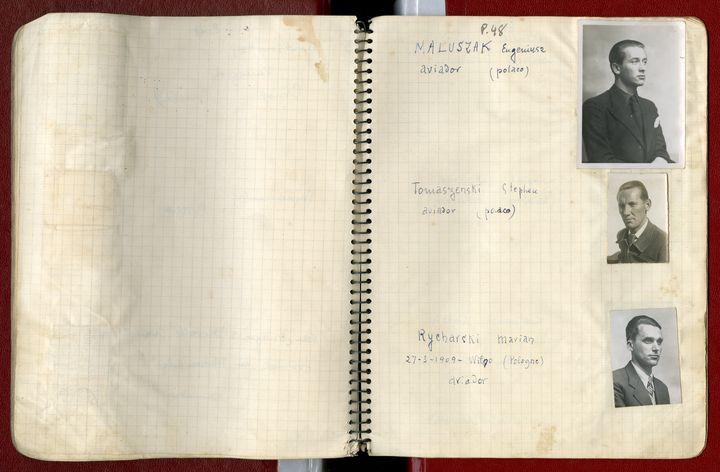 P.48
MALUSZAK Eugeniusz
aviador (polaco)
Tomaszenski Stephen
aviador (polaco)
Rycharski Marian
27-3-1909- (Pologne)
aviador